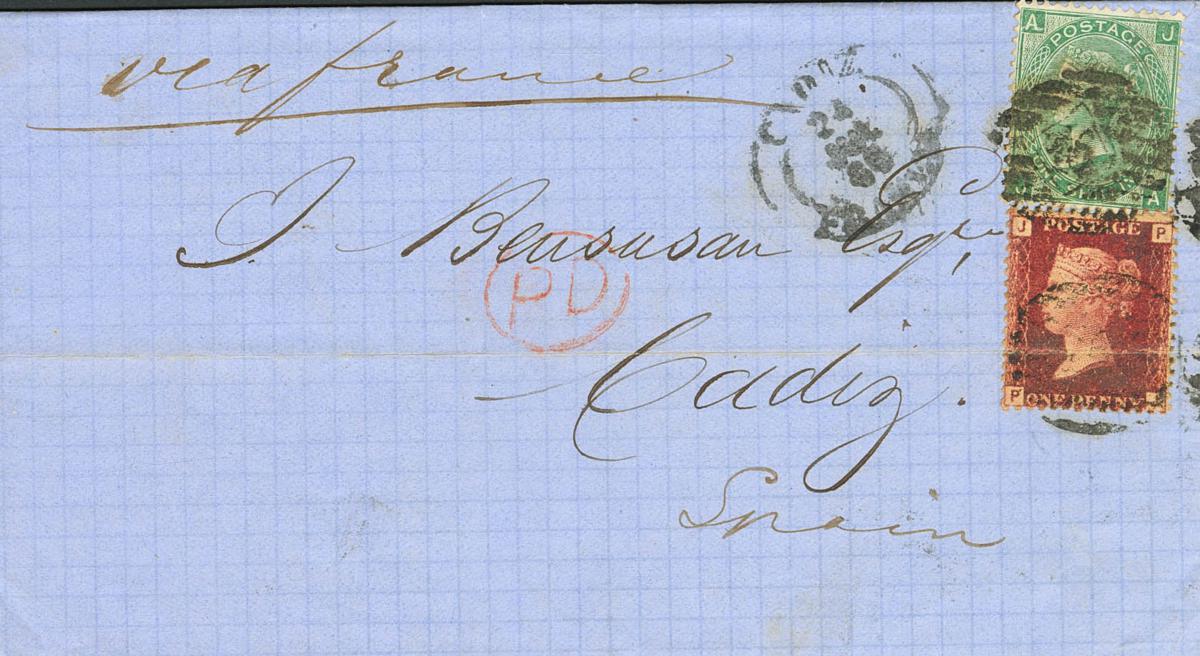 via france
J. Bensusan Esqre,
Cadiz.
Spain
PD
CADIZ
24
A POSTAGE J
A
J POSTAGE P
P ONE PENNY